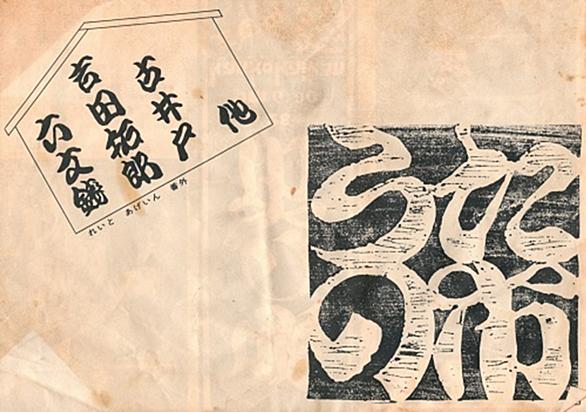 六文銭
吉田拓郎
古井戸
他
れいと あげいん 番外
うた
の市